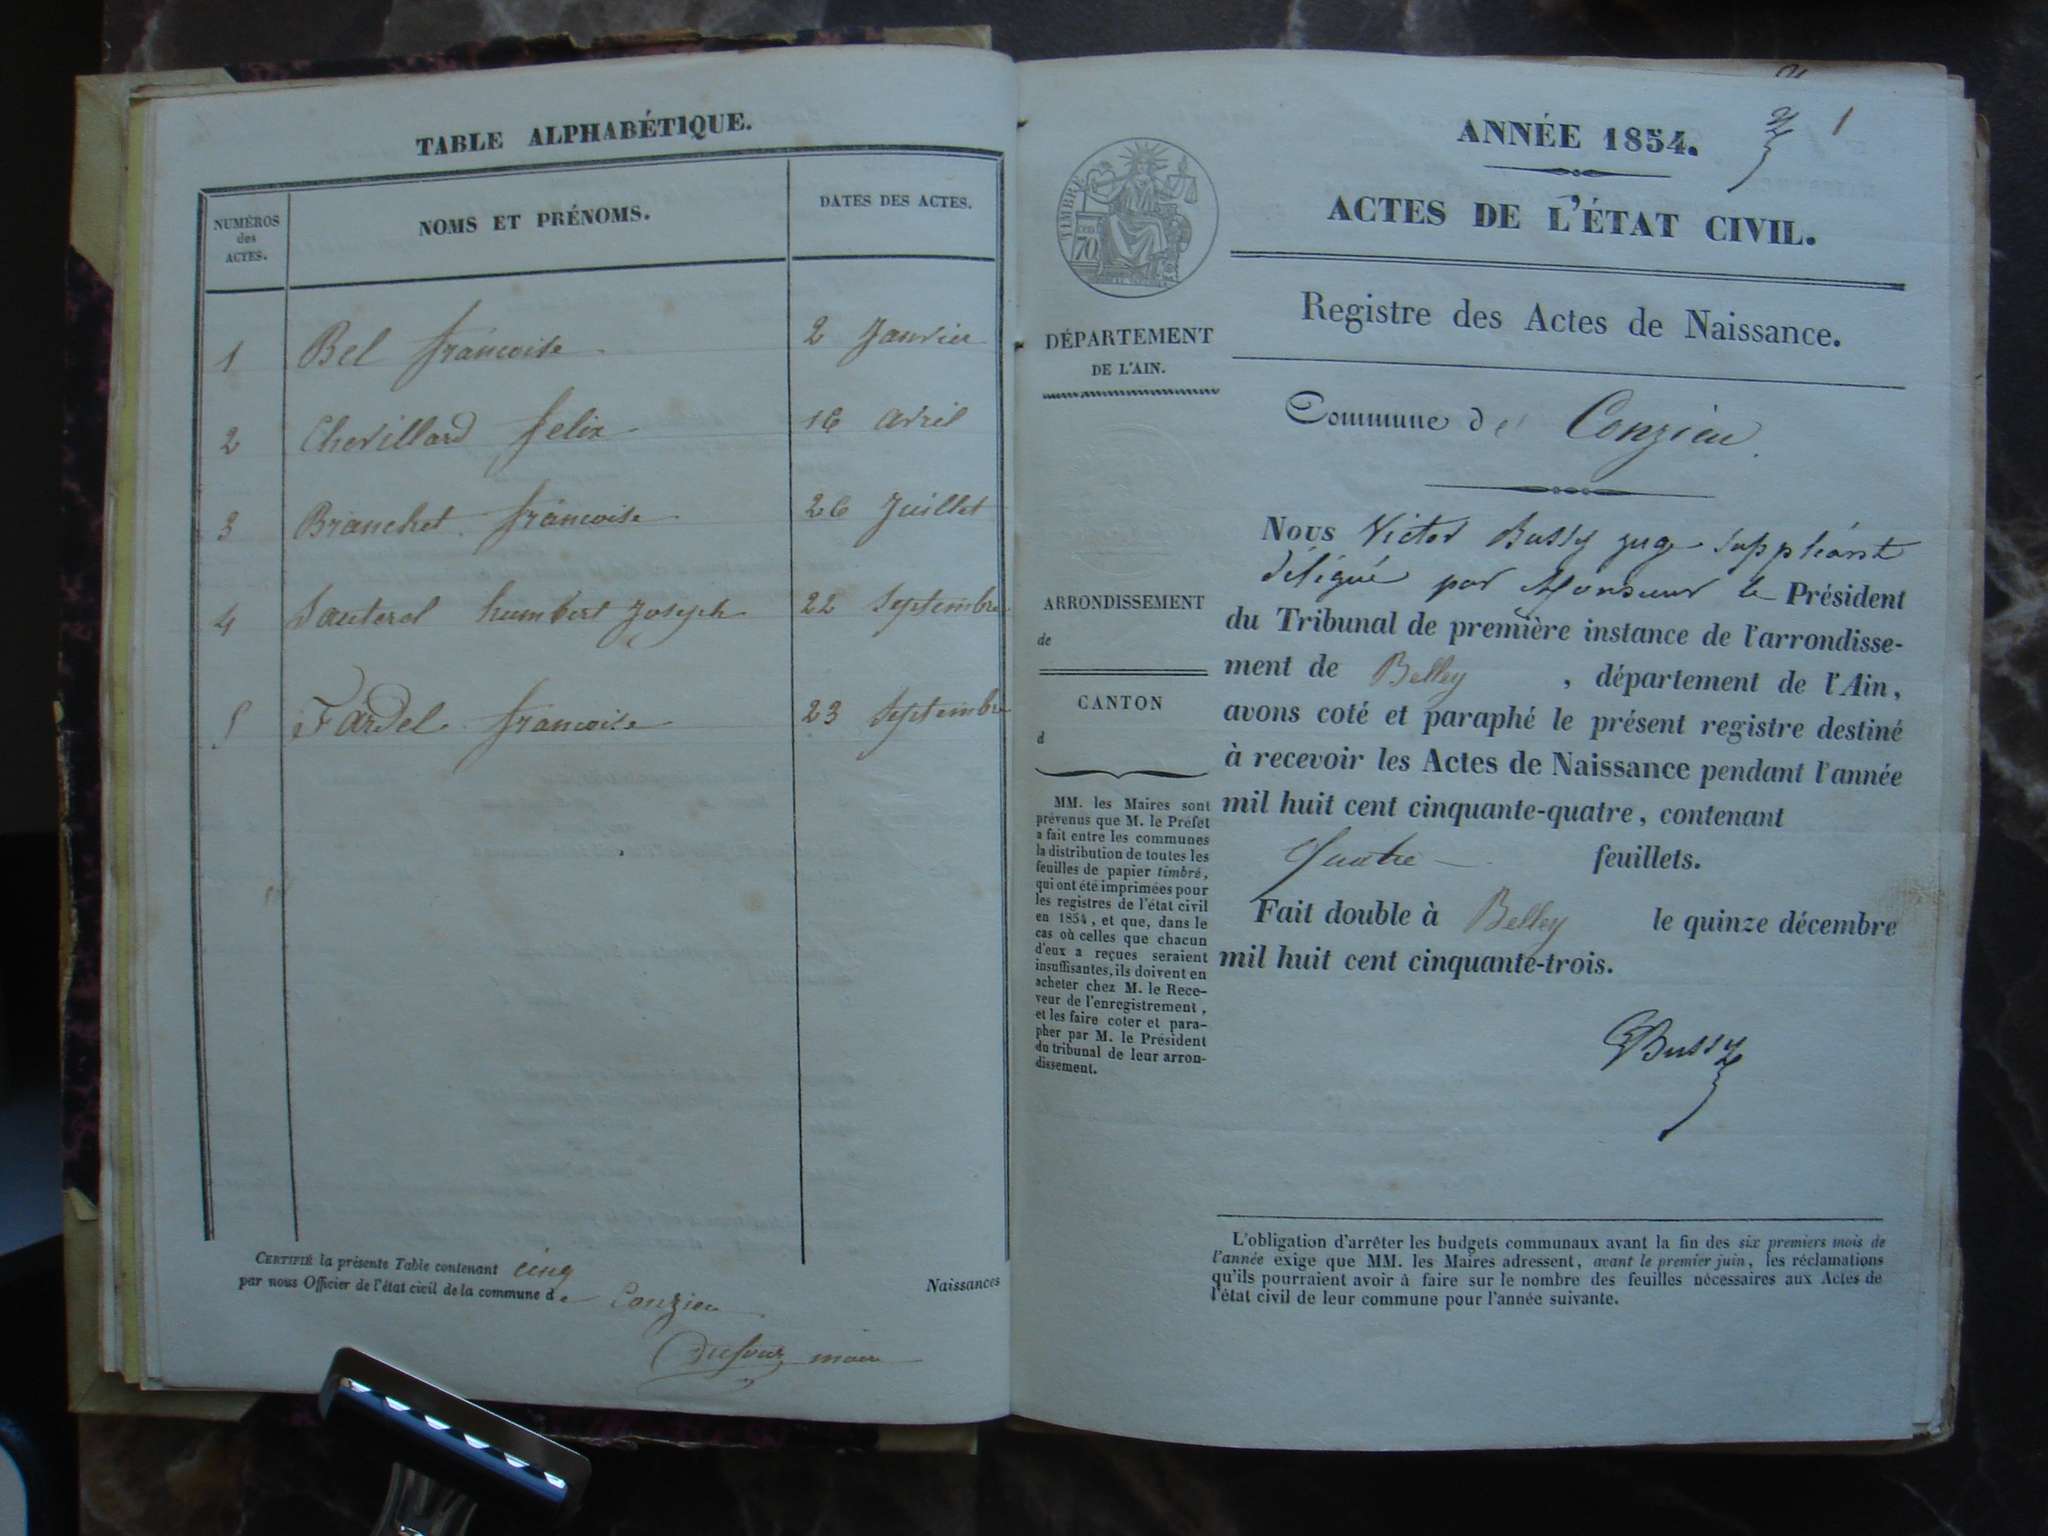 TABLE ALPHABÉTIQUE.
NUMÉROS
des
ACTES.
NOMS ET PRÉNOMS.
DATES DES ACTES.
1 Bel francoise 2 Janvier
2 Chevillard felix 16 avril
3 Branchet francoise 26 Juillet
4 humbert Joseph 22 Septembre
5 Fardel francoise 23 Septembre
CERTIFIÉ la présente Table contenant cinq
par nous Officier de l'état civil de la commune de Conzieu
Dufour maire
Naissances
1
ANNÉE 1854.
ACTES DE L'ÉTAT CIVIL.
Registre des Actes de Naissance.
TIMBRE
70
DÉPARTEMENT
DE L'AIN.
ARRONDISSEMENT
de
CANTON
d
MM. les Maires sont
prévenus que M. le Préfet
a fait entre les communes
la distribution de toutes les
feuilles de papier timbré,
qui ont été imprimées pour
les registres de l'état civil
en 1854, et que, dans le
cas où celles que chacun
d'eux a reçues seraient
insuffisantes, ils doivent en
acheter chez M. le Rece-
veur de l'enregistrement,
et les faire coter et para-
pher par M. le Président
du tribunal de leur arron-
dissement.
Commune de Conzieu
Nous Victor Bussy juge suppléant
délégué par Monsieur le Président
du Tribunal de première instance de l'arrondisse-
ment de Belley, département de l'Ain,
avons coté et paraphé le présent registre destiné
à recevoir les Actes de Naissance pendant l'année
mil huit cent cinquante-quatre, contenant
Quatre feuillets.
Fait double à Belley le quinze décembre
mil huit cent cinquante-trois.
Bussy
L'obligation d'arrêter les budgets communaux avant la fin des six premiers mois de
l'année exige que MM. les Maires adressent, avant le premier juin, les réclamations
qu'ils pourraient avoir à faire sur le nombre des feuilles nécessaires aux Actes de
l'état civil de leur commune pour l'année suivante.